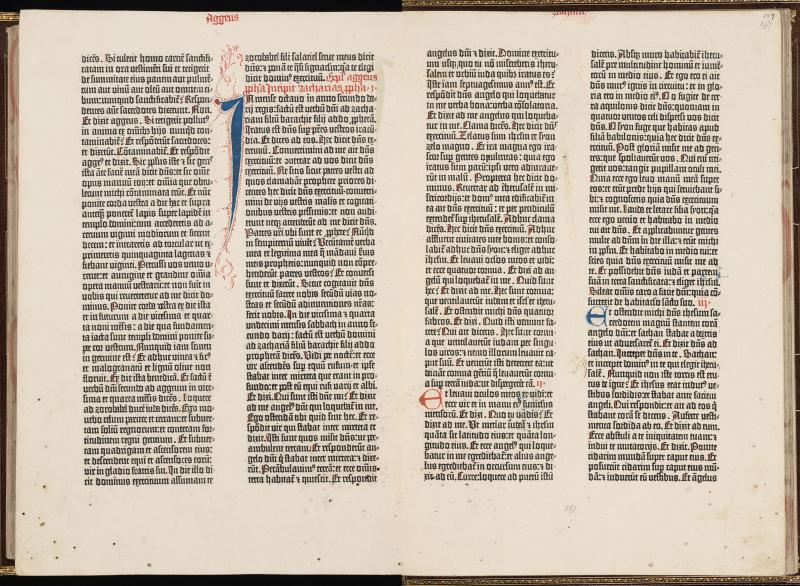 Aggeus
dicens. Si tulerit homo carnē sanctifi-
catam in ora vestimēti sui et tetigerit
de summitate eius panem aut pulmē-
tum aut vinū aut oleū aut omnem ci-
bum: numquid sanctificabit? Respon-
dentes aūt sacerdotes dixerunt. Non.
Et dixit aggeus. Si tetigerit pollutꝰ
in anima ex oīnibꝫ hijs nunquid con-
taminabit? Et respōderūt sacerdotes:
et dixerūt. Cōtaminabit. Et respōdit
aggeꝰ et dixit. Sic ppsus iste et sic gens
ista añ faciē meā dicit dñs: et sic omne
opus manuū eoꝝ: et omnia que obtu-
lerunt michi cōtaminata erūt. Et nūc
ponite corda vestra a die hac et supra
anteqȝ poneret̄ lapis super lapidē in
templo domini: cum accederetis ad a-
cervum viginti modiorum et fierent
decem: et intraretis ad torcular ut ex-
primeretis quinquaginta lagenas et
fiebant viginti. Percussi vos vento u-
rente: et aurugine et grandine omnia
opera manuū vestrarū: et non fuit in
vobis qui reverteretur ad me dicit do-
minus. Ponite corda vestra ex die ista
et in futurum a die vicesima et quar-
ta noni mēsis: a die qua fundamen-
ta iacta sunt templi domini ponite su-
per cor vestrum. Nunquid iam semen
in germine est? Et adhuc vinea et ficꝰ
et malogranatū et lignū olive non
floruit. Ex die ista benedicā. Et factū ē
verbū dñi secundo ad aggeum in vice-
sima et quarta mēsis dicēs. Loquere
ad zorobabel ducē iuda dicēs. Ego mo-
vebo celum pariter et terram: et subver-
tam soliū regnorum: et conteram for-
titudinem regni gentium. Et subver-
tam quadrigam et ascensorem eius:
et descendent equi et ascensores eorū:
vir in gladio fratris sui. In die illo di-
cit dominus exercituum assumam te
zorobabel fili salatiel serve meus dicit
dñs: et ponā te qsi signaculū: qa te elegi
dicit dominꝰ exercituū. Expl' aggeus
ppha Incipit zacharias ppha. I.
In mense octavo in anno secundo da-
rij regis: factū est verbū dñi ad zacha-
riam filiū barachie filij addo pphetā
dicēs. Iratus est dñs sup pr̄es vestros iracū-
dia. Et dices ad eos. Hec dicit dñs
exercituū. Convertimini ad me ait dñs
exercituū: et cōvertar ad vos dicit dñs
exercituū. Ne sitis sicut patres vestri ad
quos clamabāt prophete priores di-
centes hec dicit dñs exercituū: converti-
mini de vijs vestris malis et cogitati-
onibus vestris pessimis: et non audi-
erunt neqȝ attenderūt ad me dicit dñs.
Patres vestri ubi sunt et pphete? Nūqd
in sempiternū vivēt? Verūtamē verba
mea et legitima mea q̄ mādavi servis
meis prophetis: nunquid non cōpre-
henderūt patres vestros? Et conversi
sunt et dixerūt. Sicut cogitavit dñs
exercituū facere nobis secūdū vias nos-
tras et secūdū adinventiones nr̄as:
fecit nobis. In die vicesima et quarta
undecimi mensis sabbath in anno se-
cundo darij: factū est verbū domini
ad zachariā filiū barachie filij addo
prophetā dicēs. Vidi per noctē: et ecce
vir ascendēs sup equū rufum: et ipse
stabat inter mirteta que erant in pro-
fundo: et post eū equi rufi varij et albi.
Et dixi. Qui sunt isti dñe mi? Et dixit
ad me angelꝰ dñi qui loquebat̄ in me.
Ego ostendā tibi quid sint hec. Et re-
spōdit vir qui stabat inter mirteta et
dixit. Isti sunt quos misit dñs: ut per-
ambulent terram. Et responderūt an-
gelo dñi q̄ stabat inter mirteta: et dixe-
rūt. Perābulavimꝰ terrā: et ecce omnis
terra habitat̄ et quiescit. Et respondit
angelus dñi et dixit. Domine exercitu-
um usqȝquo tu nō misereberis iheru-
salem et urbiū iuda quibꝫ iratus es?
Iste iam septuagesimus annꝰ est. Et
respōdit dñs angelo qui loquebatur
in me verba bona: verba cōsolatoria.
Et dixit ad me angelus qui loqueba-
tur in me. Clama dicēs. Hec dicit dñs
exercituū. Zelatus sum iherlm et syon
zelo magno. Et ira magna ego ira-
scor sup gentes opulentas: quia ego
iratus sum parū: ipsi vero adiuvave-
rūt in malū. Propterea hec dicit do-
minus. Revertar ad iherusalē in mi-
sericordijs: et domꝰ mea edificabit̄ in
ea ait dñs exercituū: et perpendiculū
extendet̄ sup iherusalē. Adhuc clama
dicēs. Hec dicit dñs exercituū. Adhuc
affluent civitates mee bonis: et conso-
labit̄ adhuc dñs syon: et eliget adhuc
iherlm. Et levavi oclos meos et vidi:
et ecce quatuor cornua. Et dixi ad an-
gelū qui loquebat̄ in me. Quid sunt
hec? Et dixit ad me. Hec sunt cornua:
que ventilaverūt iudam et isrl et iheru-
salē. Et ostendit michi dñs quatuor
fabros. Et dixi. Quid isti veniunt fa-
cere? Qui ait dicens. Hec sunt cornu-
a que ventilaverūt iudam per singu-
los viros: et nemo illorum levavit ca-
put suū. Et venerūt isti deterrere ea: ut
deiciāt cornua gentiū q̄ levaverūt cornu-
a sup terrā iuda: ut dispergerēt eā. II.
Et levavi oculos meos et vidi: et
ecce vir et in manu eiꝰ funiculus
mensorū. Et dixi. Quo tu vadis? Et
dixit ad me. Ut metiar iherlm: et videā
quāta sit latitudo eius: et quāta lon-
gitudo eius. Et ecce angelꝰ qui loque-
batur in me egrediebat̄: et alius angelus
egrediebat̄ in occursum eius: et di-
xit ad eū. Curre: loquere ad puerū istū
dicens. Absqȝ muro habitabit̄ iheru-
salē pre multitudine hominū et iumen-
torū in medio eius. Et ego ero ei ait
dñs murꝰ ignis in circuitu: et in glo-
ria ero in medio eiꝰ. O o fugite de ter-
ra aquilonis dicit dñs: quoniam in
quatuor ventos celi dispersi vos dicit
dñs. O syon fuge que habitas apud
filiā babilonis: quia hec dicit dñs ex-
ercituū. Post gloriā misit me ad gen-
tes: que spoliaverūt vos. Qui eni teti-
gerit vos: tangit pupillam oculi mei.
Quia ecce ego levo manū meā super
eos: et erūt prede hijs qui serviebant si-
bi: et cognoscetis quia dñs exercituum
misit me. Lauda et letare filia syon: qa
ecce ego venio et habitabo in medio
tui ait dñs. Et applicabunt̄ gentes
multe ad dñm in die illa: et erūt michi
in pplm. Et habitabo in medio tui: et
scies quia dñs exercituū misit me ad
te. Et possidebit dñs iudā et partem
suā in terra sanctificata: et eliget iherlm.
Sileat omīs caro a facie dñi: quia cō-
surrexit de habitaclo sancto suo. III.
Et ostendit michi dñs ihesum sa-
cerdotem magnū stantem corā
angelo dñi: et sathan stabat a dextris
eius ut adversaret̄ ei. Et dixit dñs ad
sathan. Increpet dñs in te. Sathan:
et increpet dominꝰ in te qui elegit iheru-
salē. Nunquid non iste torris est eru-
tus de igne? Et ihesus erat indutꝰ ve-
stibus sordidis: et stabat ante faciem
angeli. Qui respondit: et ait ad eos q̄
stabant corā se dicens. Auferte vesti-
menta sordida ab eo. Et dixit ad eum.
Ecce abstuli a te iniquitatem tuam: et
indui te mutatorijs. Et dixit. Ponite
cidarim mundā super caput eius. Et
posuerūt cidarim sup caput eius mū-
dā: et induerūt eū vestibus. Et āgelus